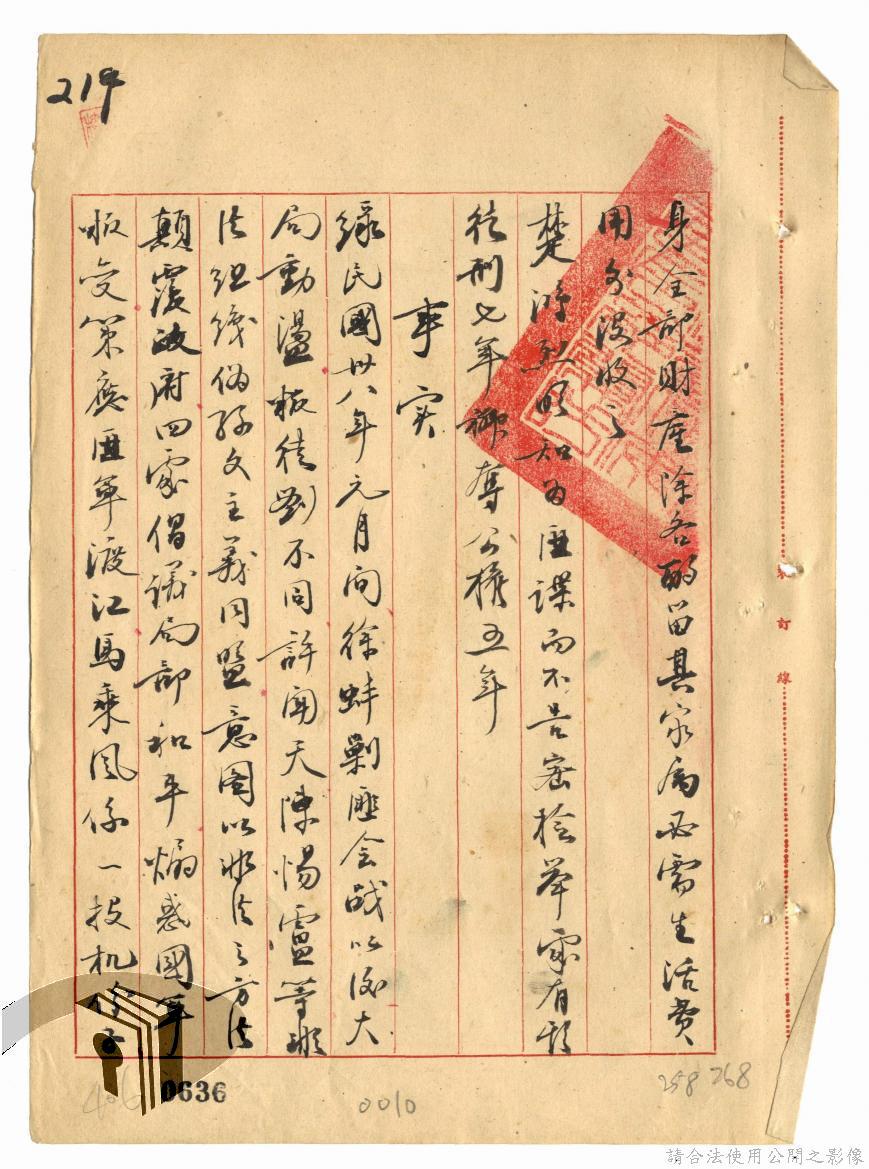 219
身全部財產除各酌留其家屬必需生活費
用外沒收之
楚鴻烈明知為匪諜而不告密檢舉處有期
徒刑七年褫奪公權五年
事实
緣民國卅八年元月间徐蚌剿匪会战以後大
局動盪叛徒劉不同許聞天陳惕盧等非
法组织偽孫文主義同盟意圖以非法之方法
顛覆政府四處倡議局部和平煽惑國軍
叛变策應匪軍渡江馬乘风係一投机
訂線
0636
0010
258 268
請合法使用公開之影像